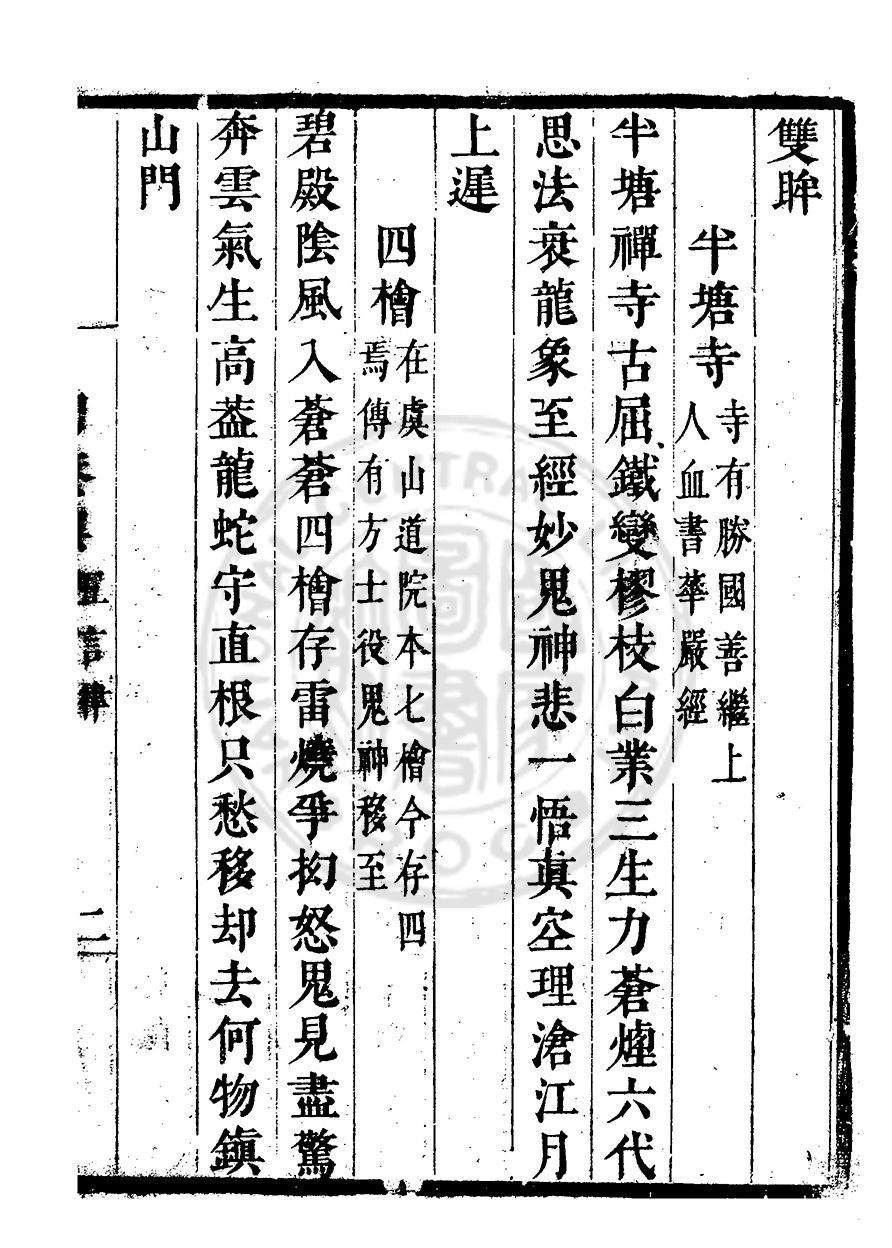 雙眸
半塘寺寺有勝國善繼上
人血書華嚴經
半塘禪寺古屈鐵變樛枝白業三生力蒼煙六代
思法衰龍象至經妙鬼神悲一悟真空理滄江月
上遲
四檜在虞山道院本七檜今存四
焉傳有方士役鬼神移至
碧殿陰風入蒼蒼四檜存雷燒爭抝怒鬼見盡驚
奔雲氣生高葢龍蛇守直根只愁移却去何物鎮
山門
五言律
二